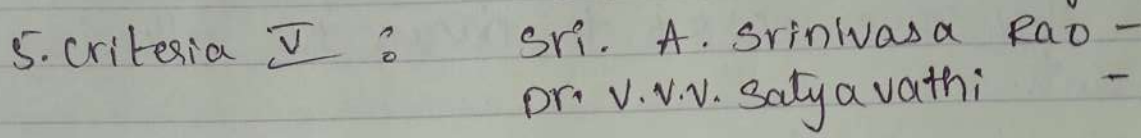 5. Criteria V : Sri. A. Srinivasa Rao -
Dr. V.V.V. Satyavathi -